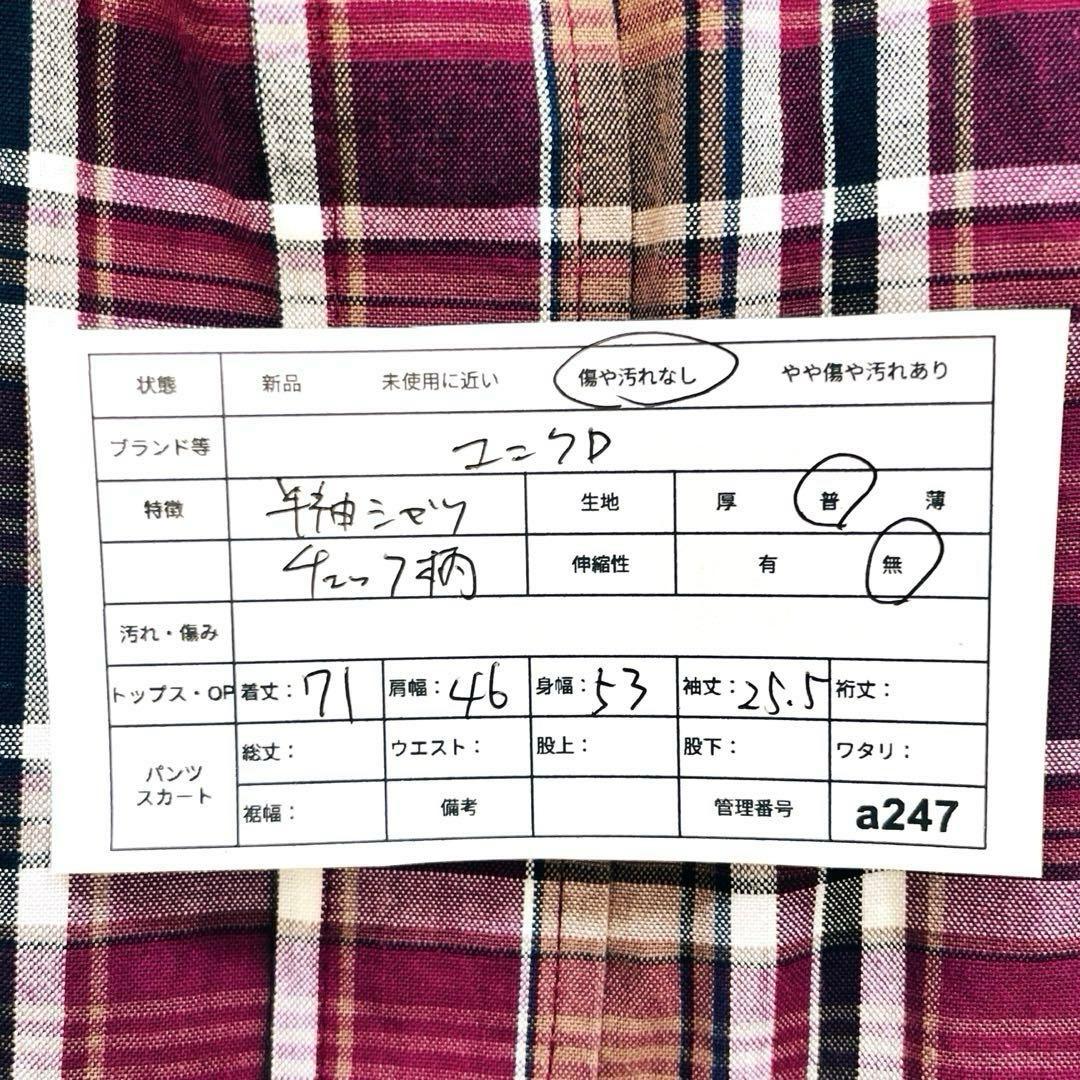 状態 新品 未使用に近い 傷や汚れなし やや傷や汚れあり
ブランド等 ユニクロ
特徴 半袖シャツ 生地 厚 普 薄
チェック柄 伸縮性 有 無
汚れ・傷み
トップス・OP 着丈：71 肩幅：46 身幅：53 袖丈：25.5 裄丈：
パンツ スカート 総丈： ウエスト： 股上： 股下： ワタリ：
裾幅： 備考 管理番号 a247